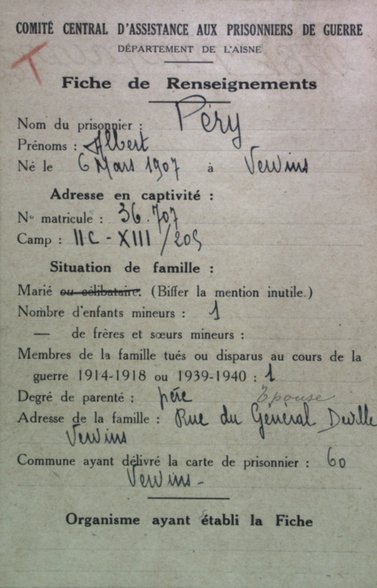 COMITÉ CENTRAL D'ASSISTANCE AUX PRISONNIERS DE GUERRE
DÉPARTEMENT DE L'AISNE
T
Fiche de Renseignements
Nom du prisonnier : Péry
Prénoms : Albert
Né le 6 Mars 1907 à Vervins
Adresse en captivité :
N° matricule : 36.707
Camp : IIC - XIII / 205
Situation de famille :
Marié ou célibataire. (Biffer la mention inutile.)
Nombre d'enfants mineurs : 1
— de frères et sœurs mineurs :
Membres de la famille tués ou disparus au cours de la
guerre 1914-1918 ou 1939-1940 : 1
Degré de parenté : père Épouse
Adresse de la famille : Rue du Général Deville
Vervins
Commune ayant délivré la carte de prisonnier : 60
Vervins -
Organisme ayant établi la Fiche